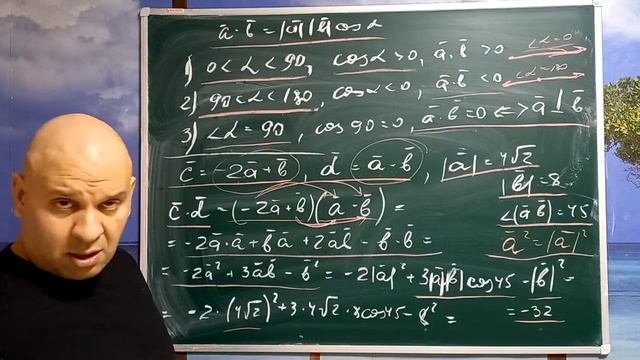 ā·b̄ = |ā||b̄|cosα
1) 0<α<90, cosα>0, ā·b̄>0 <α=0°
2) 90<α<180, cosα<0, ā·b̄<0 <α=180
3) <α=90, cos90=0, ā·b̄=0 <=> ā⊥b̄
c̄=-2ā+b̄, d̄=ā-b̄, |ā|=4√2
|b̄|=8
c̄·d̄=(-2ā+b̄)(ā-b̄)= <(āb̄)=45
=-2ā·ā+b̄ā+2āb̄-b̄·b̄= ā²=|ā|²
=-2ā²+3āb̄-b̄²=-2|ā|²+3|ā||b̄|cos45-|b̄|²=
=-2·(4√2)²+3·4√2·8cos45-8²= =-32